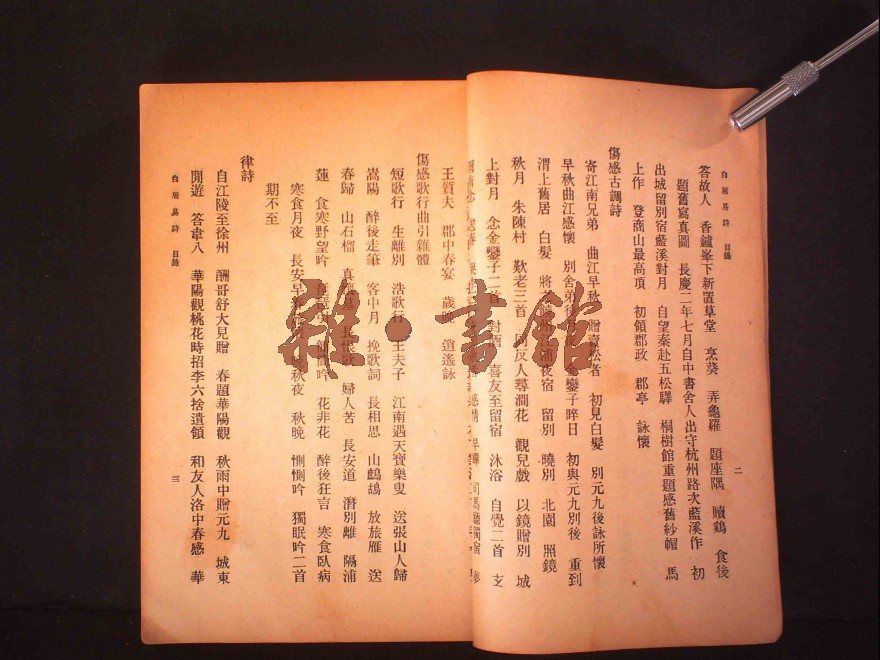 白居易詩 目錄
二
答故人 香鑪峯下新置草堂 烹葵 弄龜羅 題座隅 贖鷄 食後
題舊寫真圖 長慶二年七月自中書舍人出守杭州路次藍溪作 初
出城留別宿藍溪對月 自望秦赴五松驛 桐樹館重題感舊紗帽 馬
上作 登商山最高頂 初領郡政 郡亭 詠懷
傷感古調詩
寄江南兄弟 曲江早秋 贈賣松者 初見白髮 別元九後詠所懷
早秋曲江感懷 別舍弟後 金鑾子晬日 初與元九別後 重到
渭上舊居 白髮 將 浦夜宿 留別 曉別 北園 照鏡
秋月 朱陳村 歎老三首 友人尋澗花 觀兒戲 以鏡贈別 城
上對月 念金鑾子二首 對酒 喜友至留宿 沐浴 自覺二首
司馬廳獨宿
王質夫 郡中春宴 歲晚 逍遙詠
傷感歌行曲引雜體
短歌行 生離別 浩歌行 王夫子 江南遇天寶樂叟 送張山人歸
嵩陽 醉後走筆 客中月 挽歌詞 長相思 山鷓鴣 放旅雁 送
春歸 山石榴 真 長恨歌 婦人苦 長安道 潛別離 隔浦
蓮 食寒野望吟 吟 花非花 醉後狂言 寒食臥病
寒食月夜 長安早 秋夜 秋晚 惻惻吟 獨眠吟二首
期不至
律詩
自江陵至徐州 酬哥舒大見贈 春題華陽觀 秋雨中贈元九 城東
閒遊 答韋八 華陽觀桃花時招李六拾遺領 和友人洛中春感 華
白居易詩 目錄
三
雅·書館